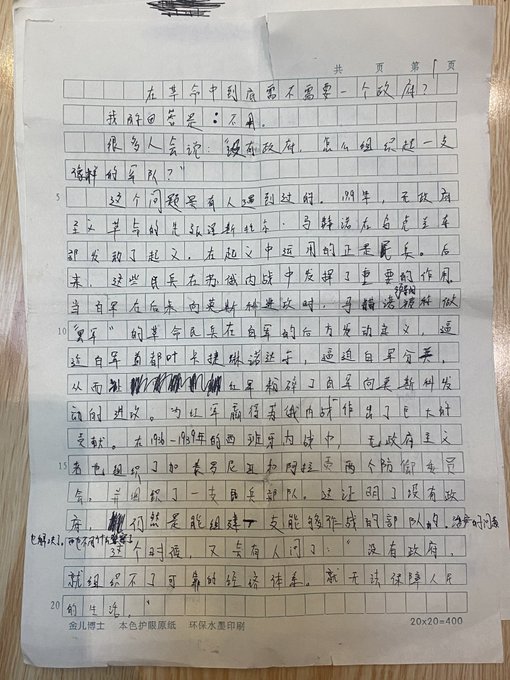 共 页 第 1 页
在革命中到底需不需要一个政府?
我的回答是:不用。
很多人会说:"没有政府,怎么组织起一支
像样的军队?"
5 这个问题是有人遇到过的。1919年,无政府
主义革命的先驱涅斯托尔·马赫诺在乌克兰东
部发动了起义,在起义中运用的正是民兵。后
来,这些民兵在苏俄内战中发挥了重要的作用。
当白军在后来向莫斯科进攻时,马赫诺 的
10 "黑军"的革命民兵在白军的后方发动起义,逼
近白军首都叶卡捷琳诺达尔,逼迫白军分兵,
从而 红军粉碎了白军向莫斯科发
动的进攻。为红军赢得苏俄内战作出了巨大的
贡献。在1936-1939年的西班牙内战中,无政府主义
15 者也组织了加泰罗尼亚和阿拉贡两个防御委员
会,并组织了一支民兵部队。这证明了没有政
府, 仍然是能组建一支能够作战的部队的。治安的问题
也解决了。
这个时候,又会有人问了:"没有政府,
就组织不了可靠的经济体系。就无法保障人民
20 的生活。"
金儿博士 本色护眼原纸 环保水墨印刷 20x20=400